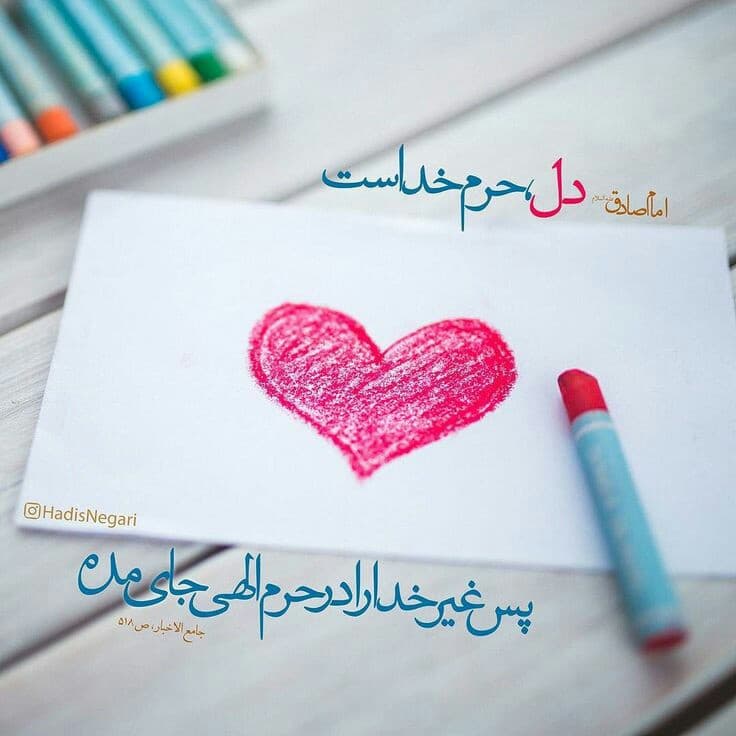 امام صادق علیه‌السلام
دل، حرم خداست
HadisNegari
پس غیر خدا را در حرم الهی جای مده
جامع الاخبار، ص۵۱۸